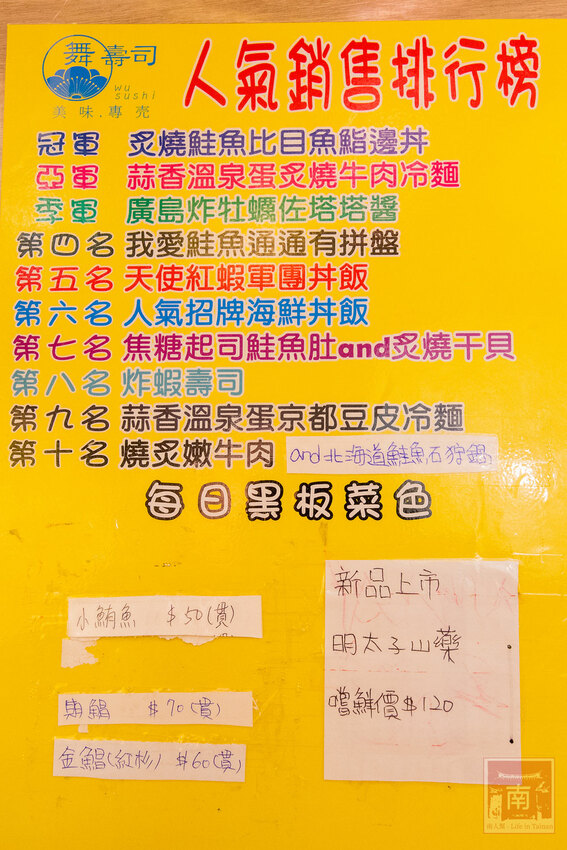 舞壽司
wu
sushi
美味.專売
人氣銷售排行榜
冠軍 炙燒鮭魚比目魚鮨邊丼
亞軍 蒜香溫泉蛋炙燒牛肉冷麵
季軍 廣島炸牡蠣佐塔塔醬
第四名 我愛鮭魚通通有拼盤
第五名 天使紅蝦軍團丼飯
第六名 人氣招牌海鮮丼飯
第七名 焦糖起司鮭魚肚and炙燒干貝
第八名 炸蝦壽司
第九名 蒜香溫泉蛋京都豆皮冷麵
第十名 燒炙嫩牛肉 and北海道鮭魚石狩鍋
每日黑板菜色
小鮪魚 $50(貫)
鯛 $70(貫)
金鯧(紅杉) $60(貫)
新品上市
明太子山藥
嚐鮮價$120
南
南人幫-Life in Tainan